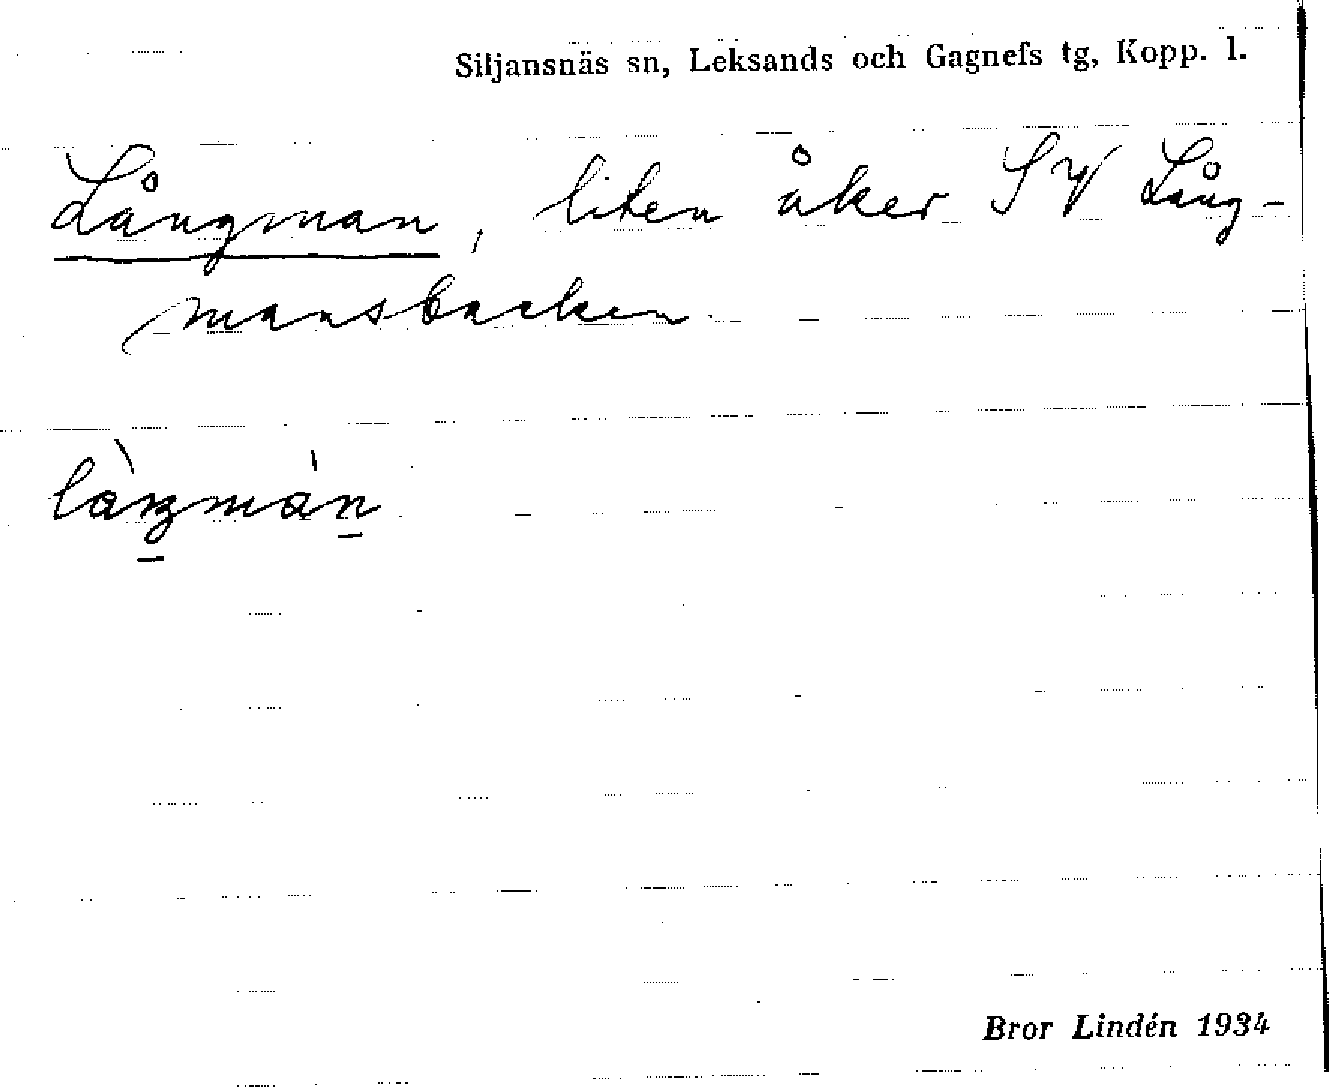 Siljansnäs sn, Leksands och Gagnefs tg, Kopp. l.
Långman, liten åker SV Lång-
mansbacken
Bror Lindén 1934